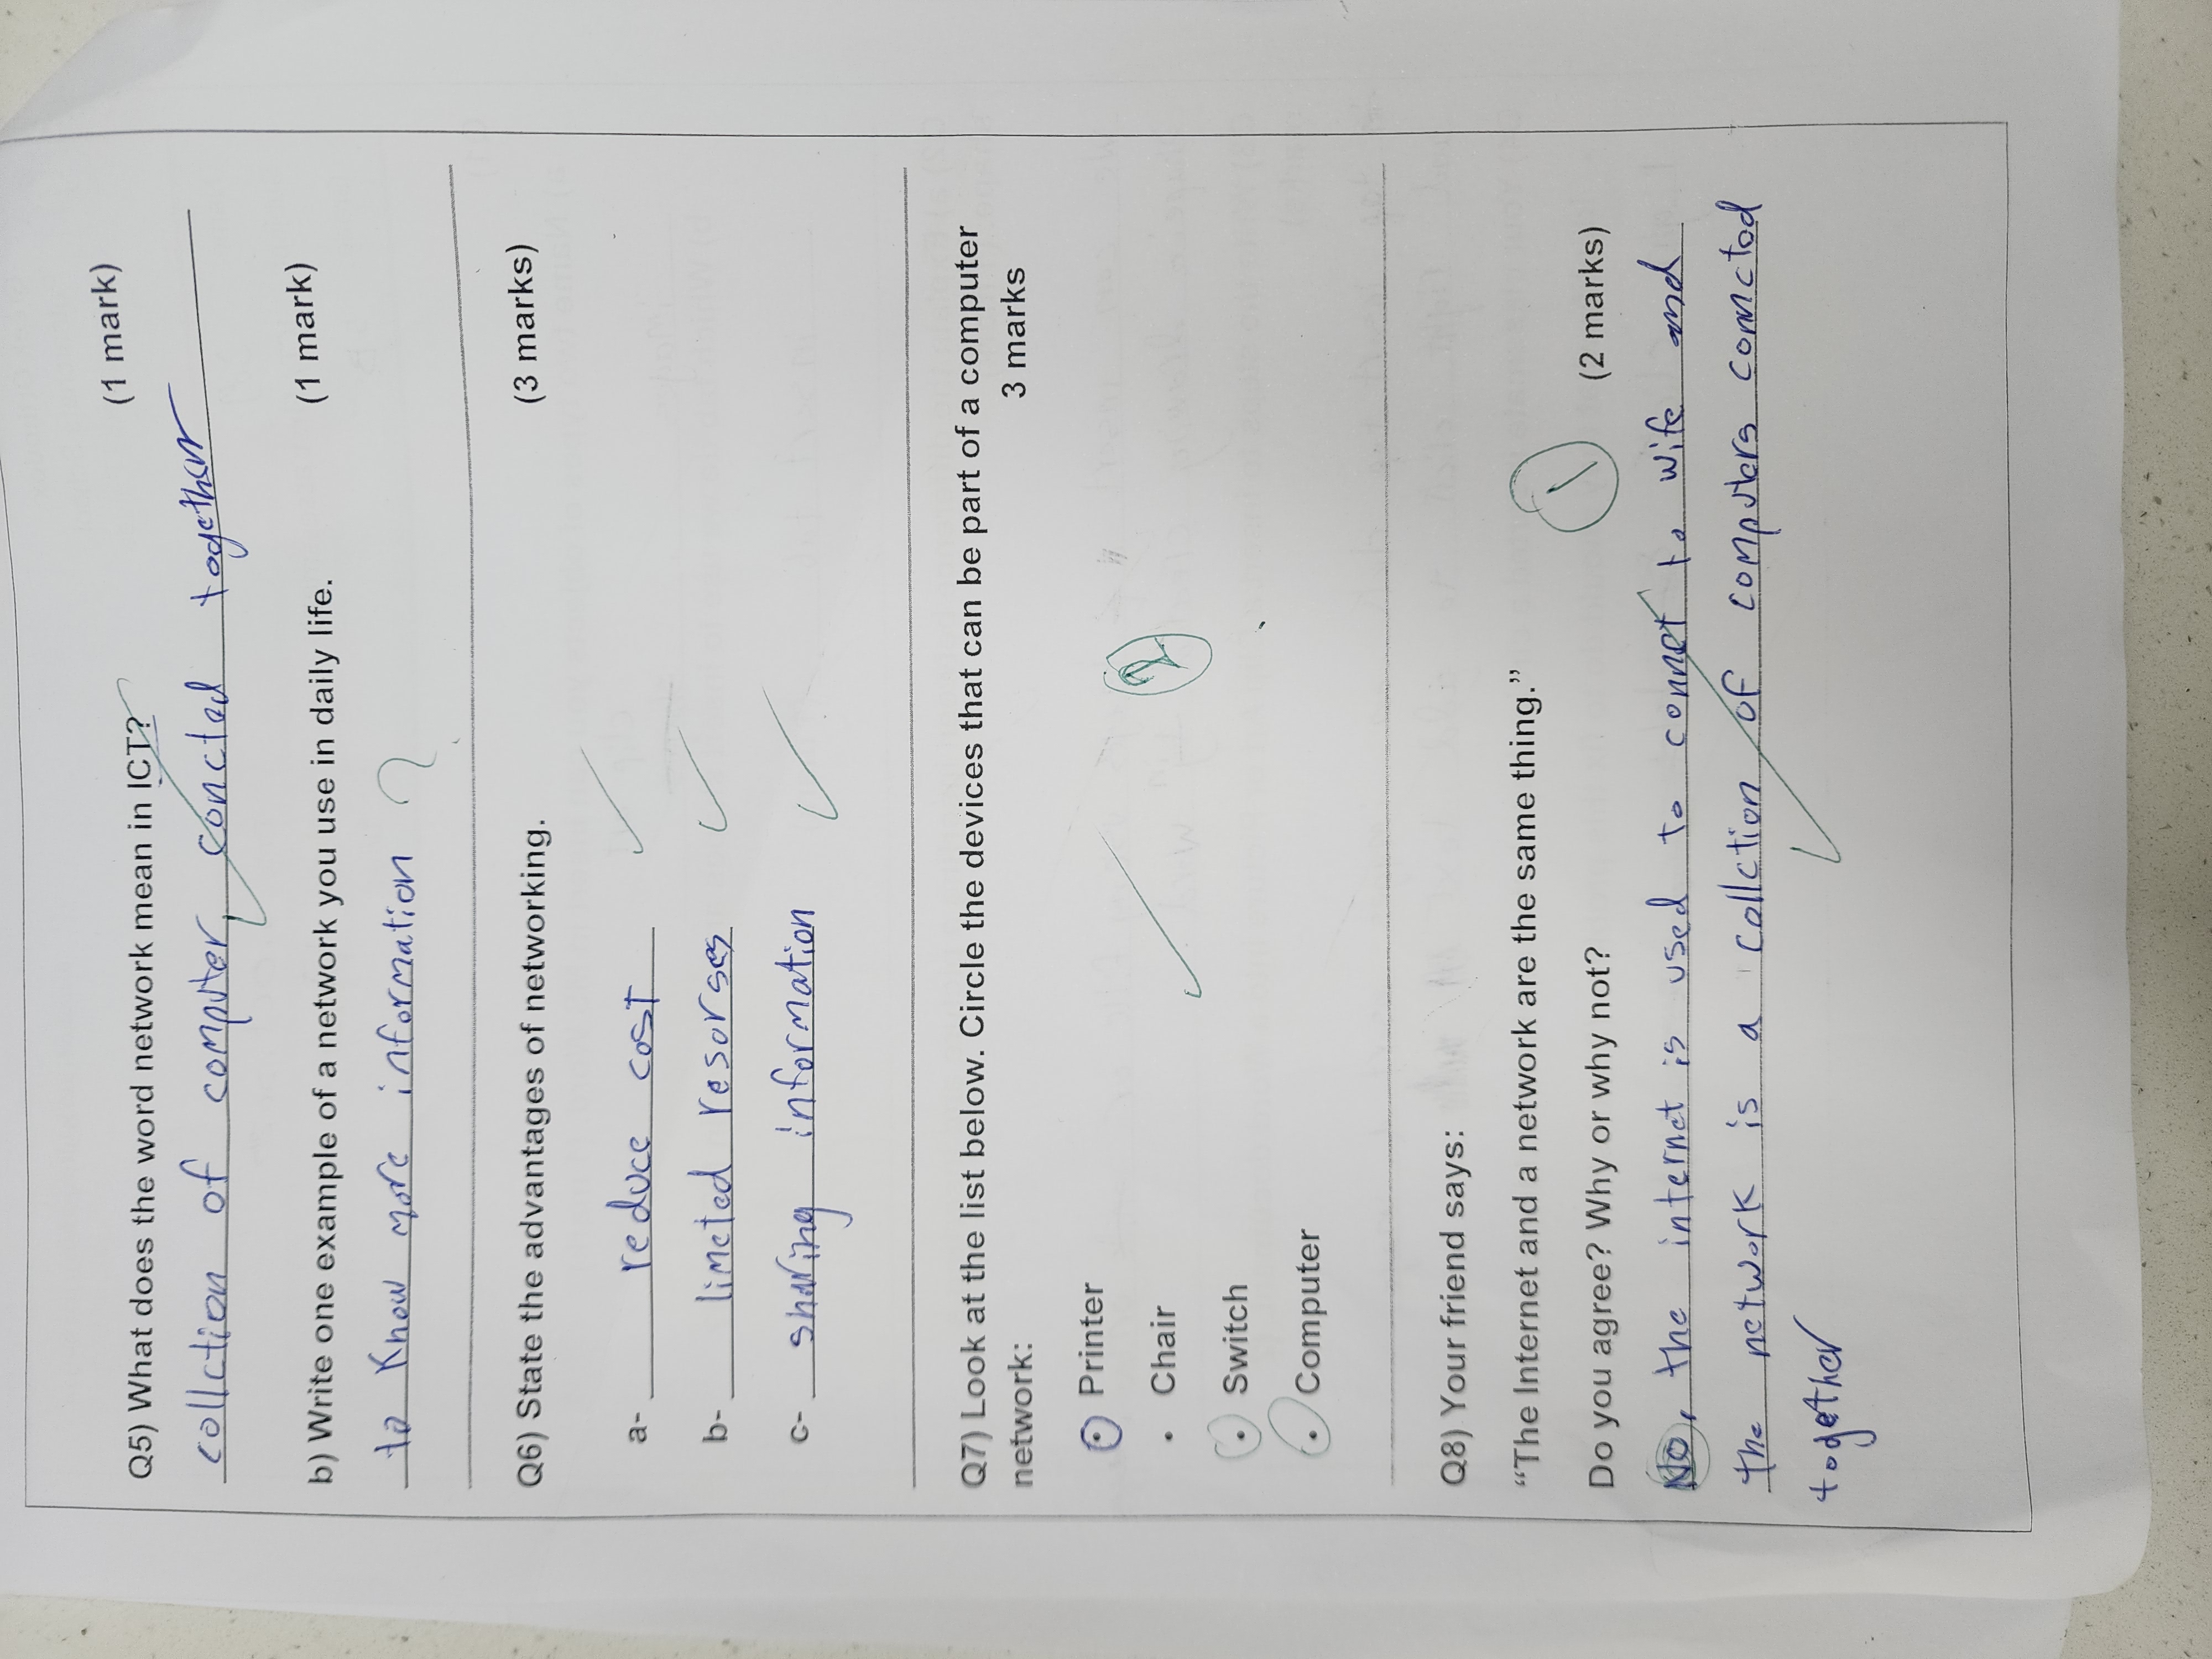 Q5) What does the word network mean in ICT? (1 mark)
collction of computer concted together
b) Write one example of a network you use in daily life. (1 mark)
to Know more information ?
Q6) State the advantages of networking. (3 marks)
a- reduce cost
b- limeted resorses
c- sharing information
Q7) Look at the list below. Circle the devices that can be part of a computer
network: 3 marks
• Printer
• Chair
2
• Switch
• Computer
Q8) Your friend says:
“The Internet and a network are the same thing.”
1
Do you agree? Why or why not? (2 marks)
No, the internet is used to connet to wife and
the network is a collction of computers conncted
together